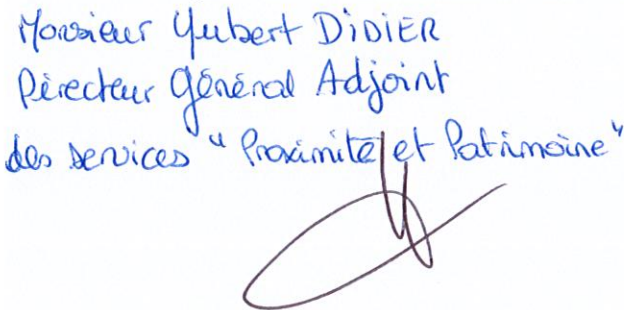 Monsieur Hubert DIDIER
Directeur Général Adjoint
des services "Proximité et Patrimoine"